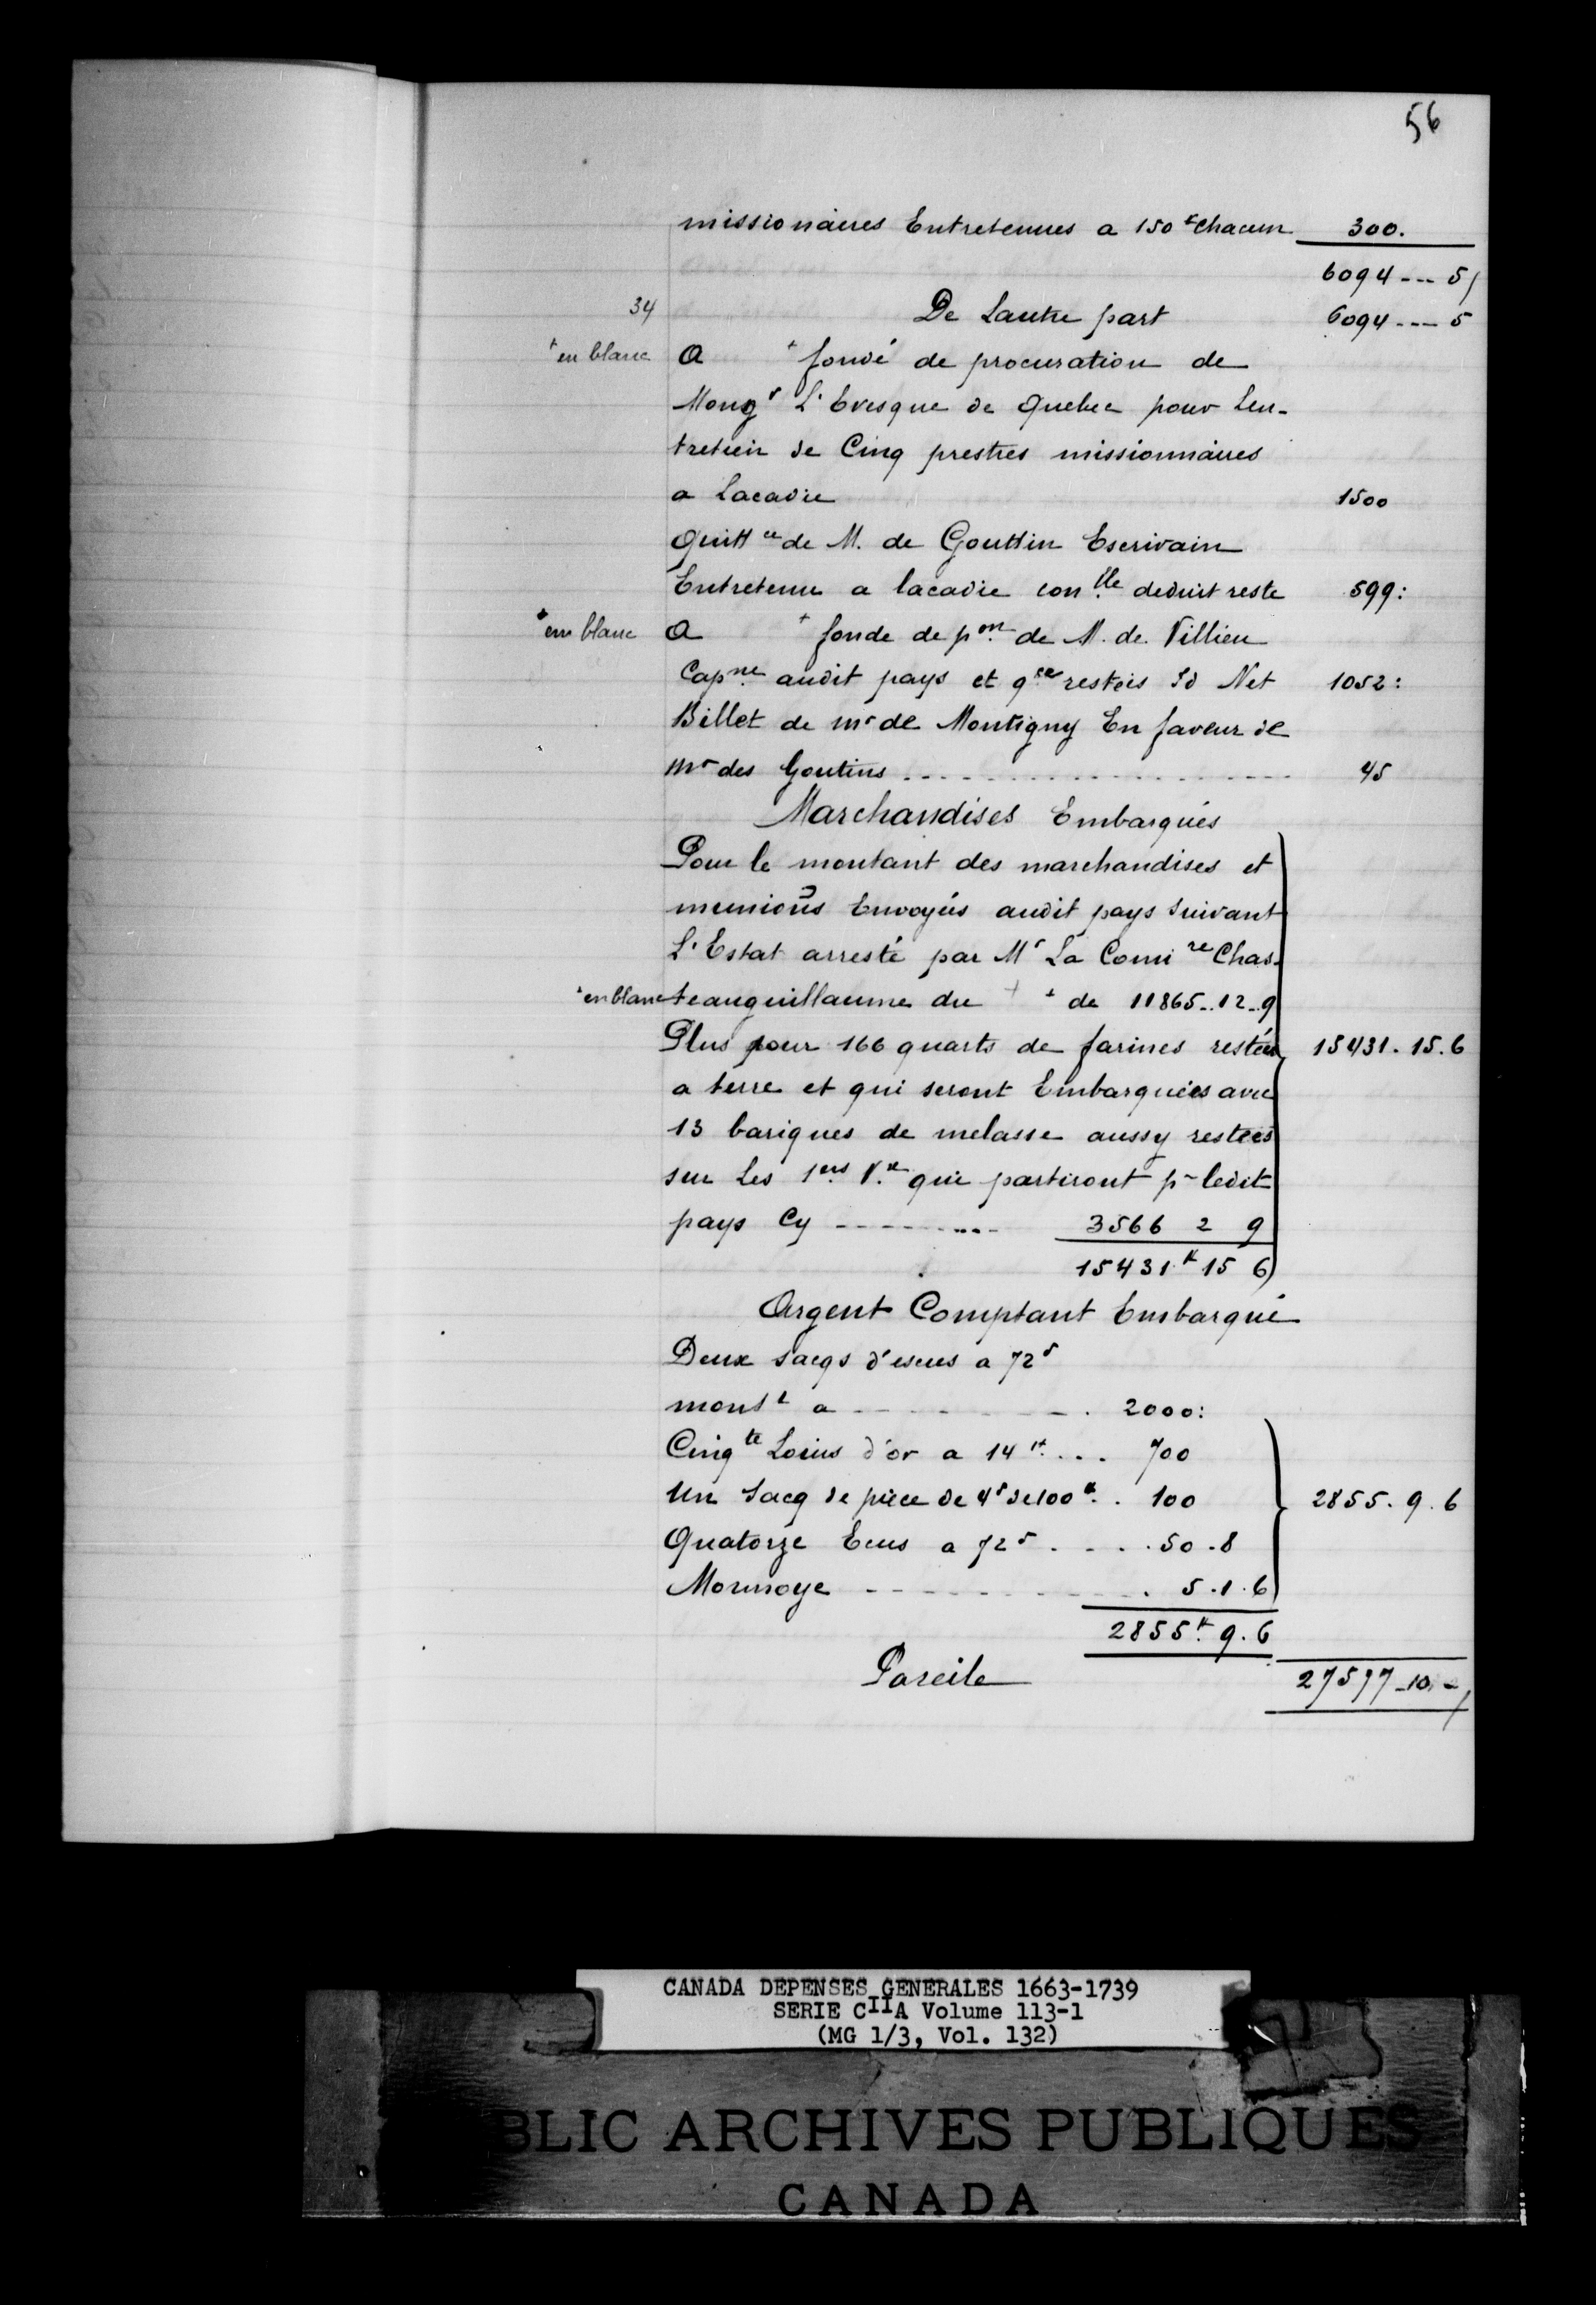 56
missionaires Entretenues a 150# chacun 300.
6094 --- 5/
34 De Lautre part 6094 --- 5
+ en blanc A + fondé de procuration de
Mongr L'Evesque de Quebec pour Len-
tretien de Cinq prestres missionnaires
a Lacadie 1500
Quittce de M. de Gouttin Escrivain
Entretenu a lacadie conlle deduit reste 599:
+ en blanc A + fonde de pon de M. de Villieu
Capne audit pays et qce restois Id Net 1052:
Billet de mr de Montigny En faveur de
Mr des Goutins 45
Marchandises Embarqués
Pour le montant des marchandises et
munions Envoyés audit pays suivant
L'Estat arresté par Mr La Comire Chas-
+ en blanc teauguillaume du + de 11865..12..9
Plus pour 166 quarts de farines restées 15431.15.6
a terre et qui seront Embarquées avec
13 bariques de melasse aussy restées
sur Les 1ers Vx qui partiront pr ledit
pays Cy --------- 3566 2 9
15431# 15 6
Argent Comptant Embarqué
Deux sacqs d'escus a 72s
montt a - - - - - - . 2000:
Cinqte Louis d'or a 14# ... 700
Un Sacq de piece de 4s de 100# . . 100 2855.9.6
Quatorze Ecus a 72s . . . . 50.8
Monnoye - - - - - - - . 5.1.6
2855# 9.6
Pareile 27577-10-/
CANADA DEPENSES GENERALES 1663-1739
SERIE CIIA Volume 113-1
(MG 1/3, Vol. 132)
BLIC ARCHIVES PUBLIQUES
CANADA